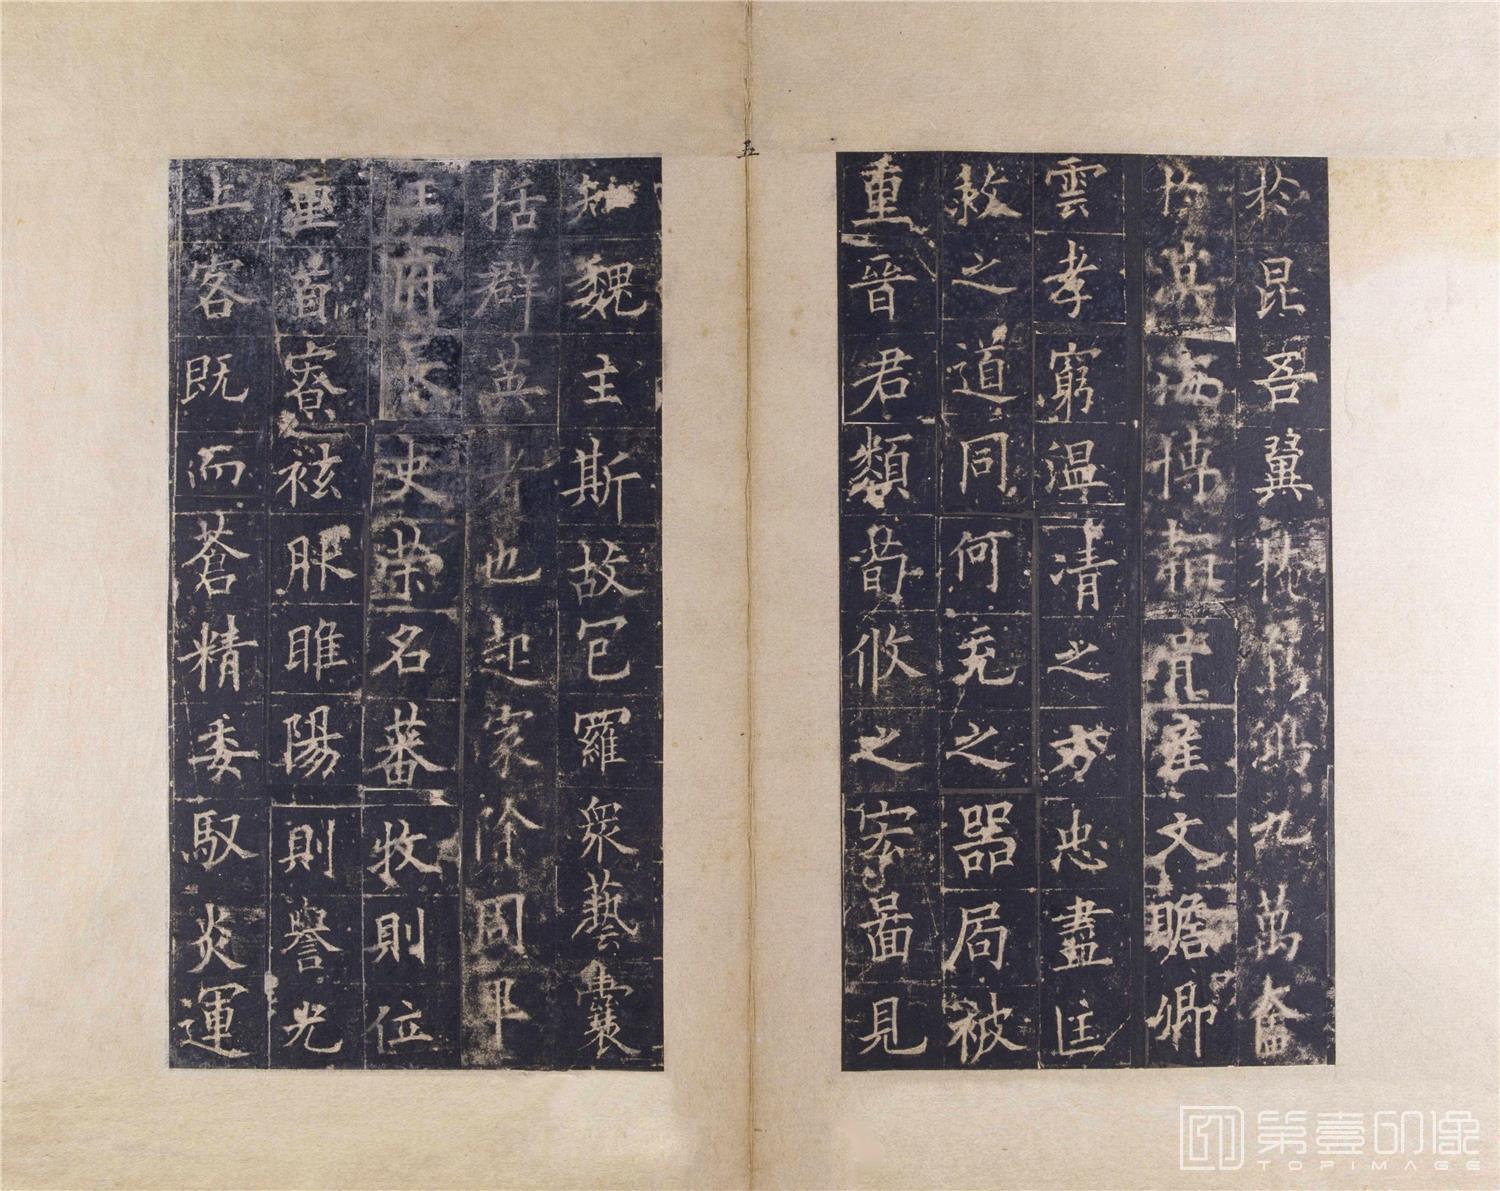 於昆吾翼掩鵷鴻九萬奮
於溟海博韜產文贍卿
雲孝窮溫清之方忠盡匡
救之道同何充之器局被
重晉君類荀攸之宏圖見
知魏主斯故包羅衆藝囊
括群英者也起家除周畢
王府長史榮名蕃牧則位
重首寮袨服睢陽則譽光
上客既而蒼精委馭炎運
五
第壹印像
TOPIMAGE